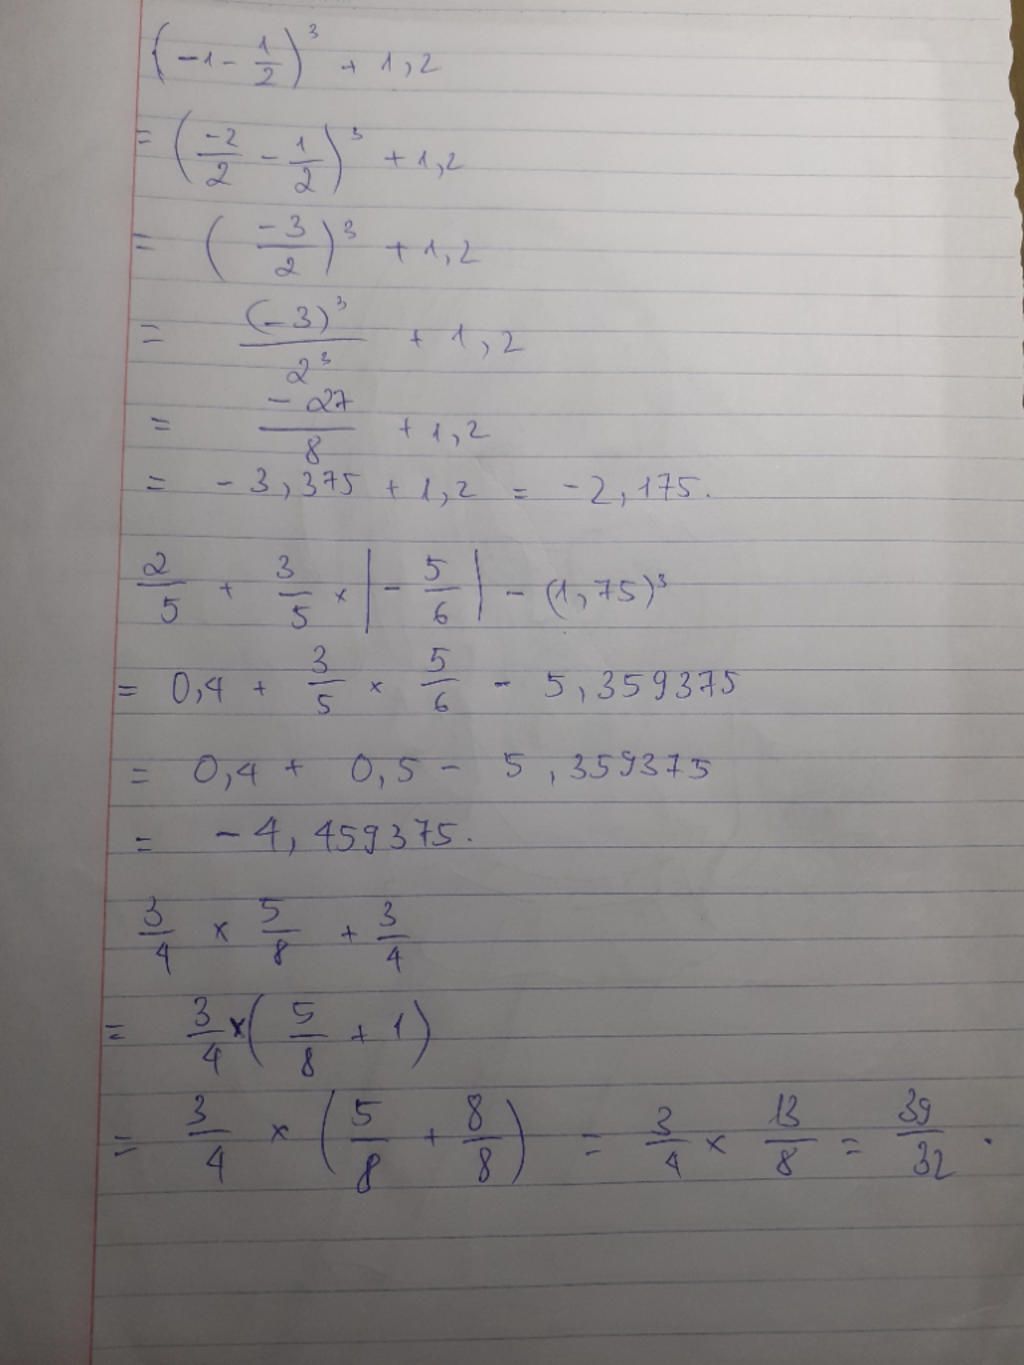 (-1 - 1/2)³ + 1,2
= (-2/2 - 1/2)³ + 1,2
= (-3/2)³ + 1,2
= (-3)³/2³ + 1,2
= -27/8 + 1,2
= -3,375 + 1,2 = -2,175.
2/5 + 3/5 × |-5/6| - (1,75)³
= 0,4 + 3/5 × 5/6 - 5,359375
= 0,4 + 0,5 - 5,359375
= -4,459375.
3/4 × 5/8 + 3/4
= 3/4 × (5/8 + 1)
= 3/4 × (5/8 + 8/8) = 3/4 × 13/8 = 39/32.